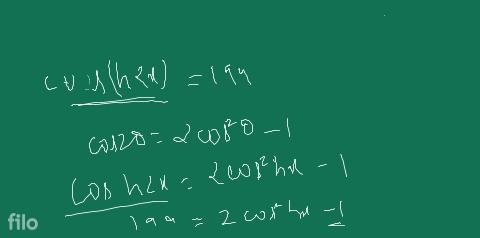 cosh(h2x) = 199
cos2θ = 2cos²θ - 1
Cosh2x = 2cos²hx - 1
199 = 2cos²hx - 1
filo